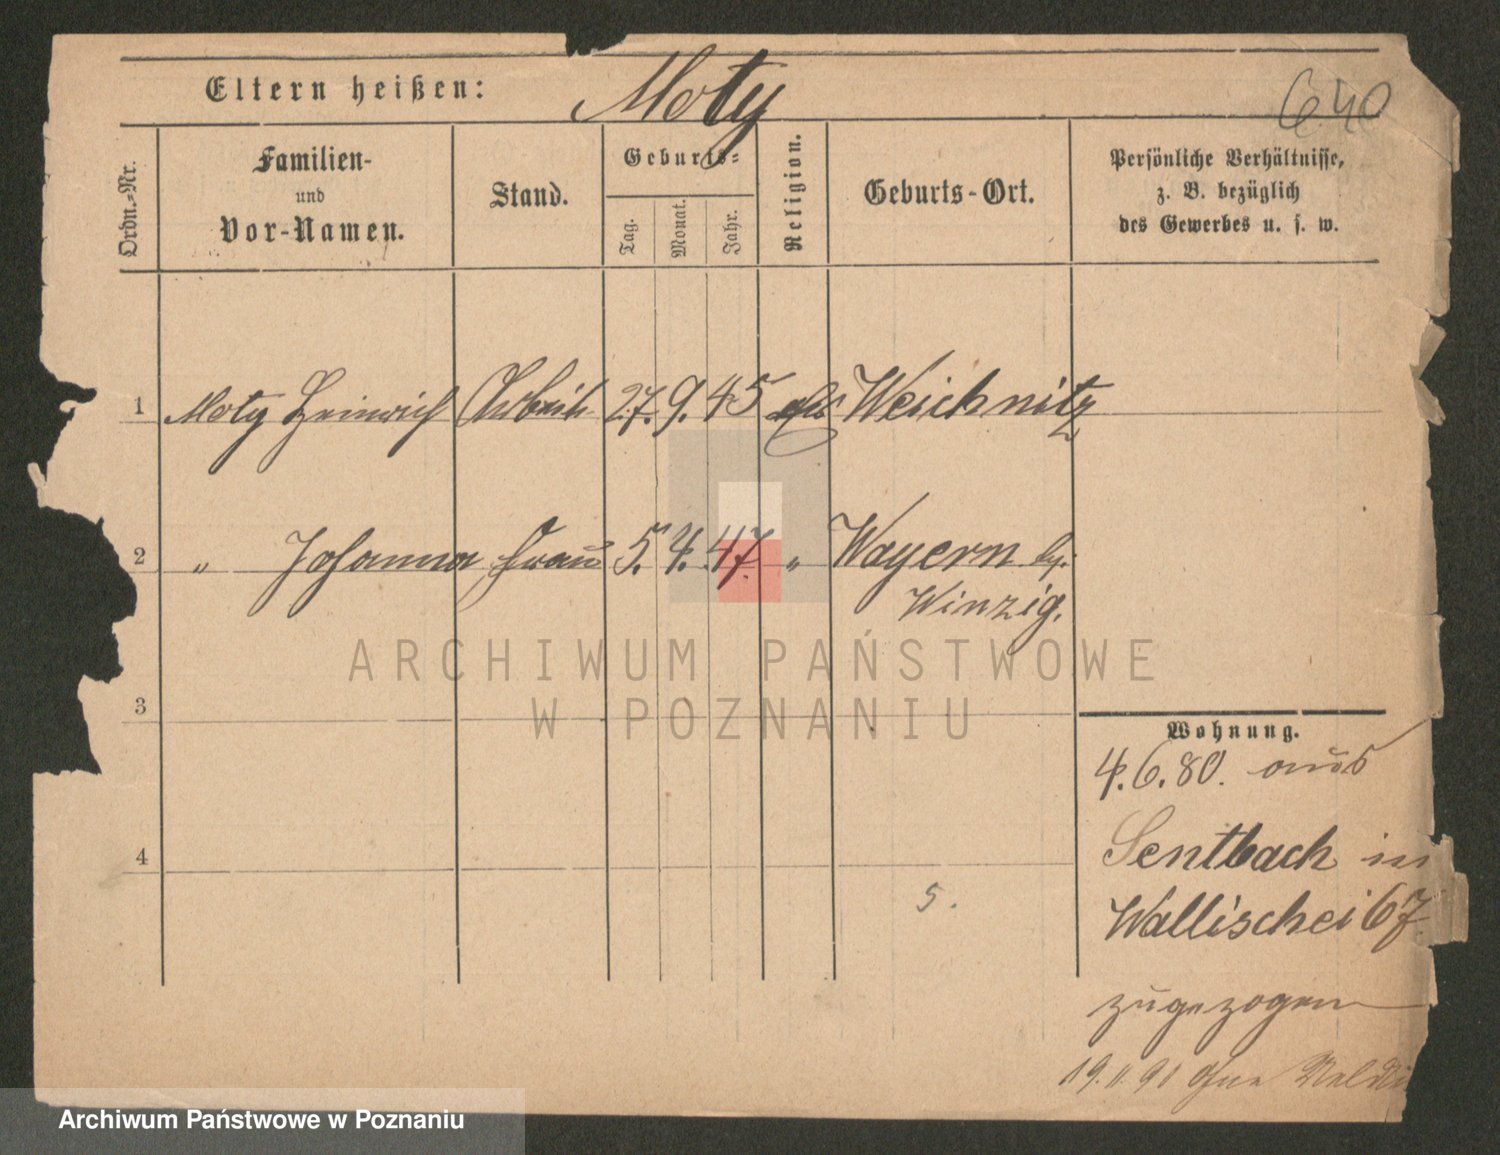 Eltern heißen: Moty 640
Ordn.-Nr.
Familien-
und
Vor-Namen.
Stand.
Geburts-
Tag. Monat. Jahr.
Religion.
Geburts-Ort.
Persönliche Verhältnisse,
z. B. bezüglich
des Gewerbes u. s. w.
1 Moty Heinrich Arbeit. 27. 9. 45 Weichnitz
2 " Johanna Frau 5. 4. 47. " Wayern
Winzig.
ARCHIWUM PAŃSTWOWE
W POZNANIU
3
4
5.
Wohnung.
4.6.80. aus
Sentbach in
Wallischei 67
zugezogen
19.11.91 ohne
Archiwum Państwowe w Poznaniu